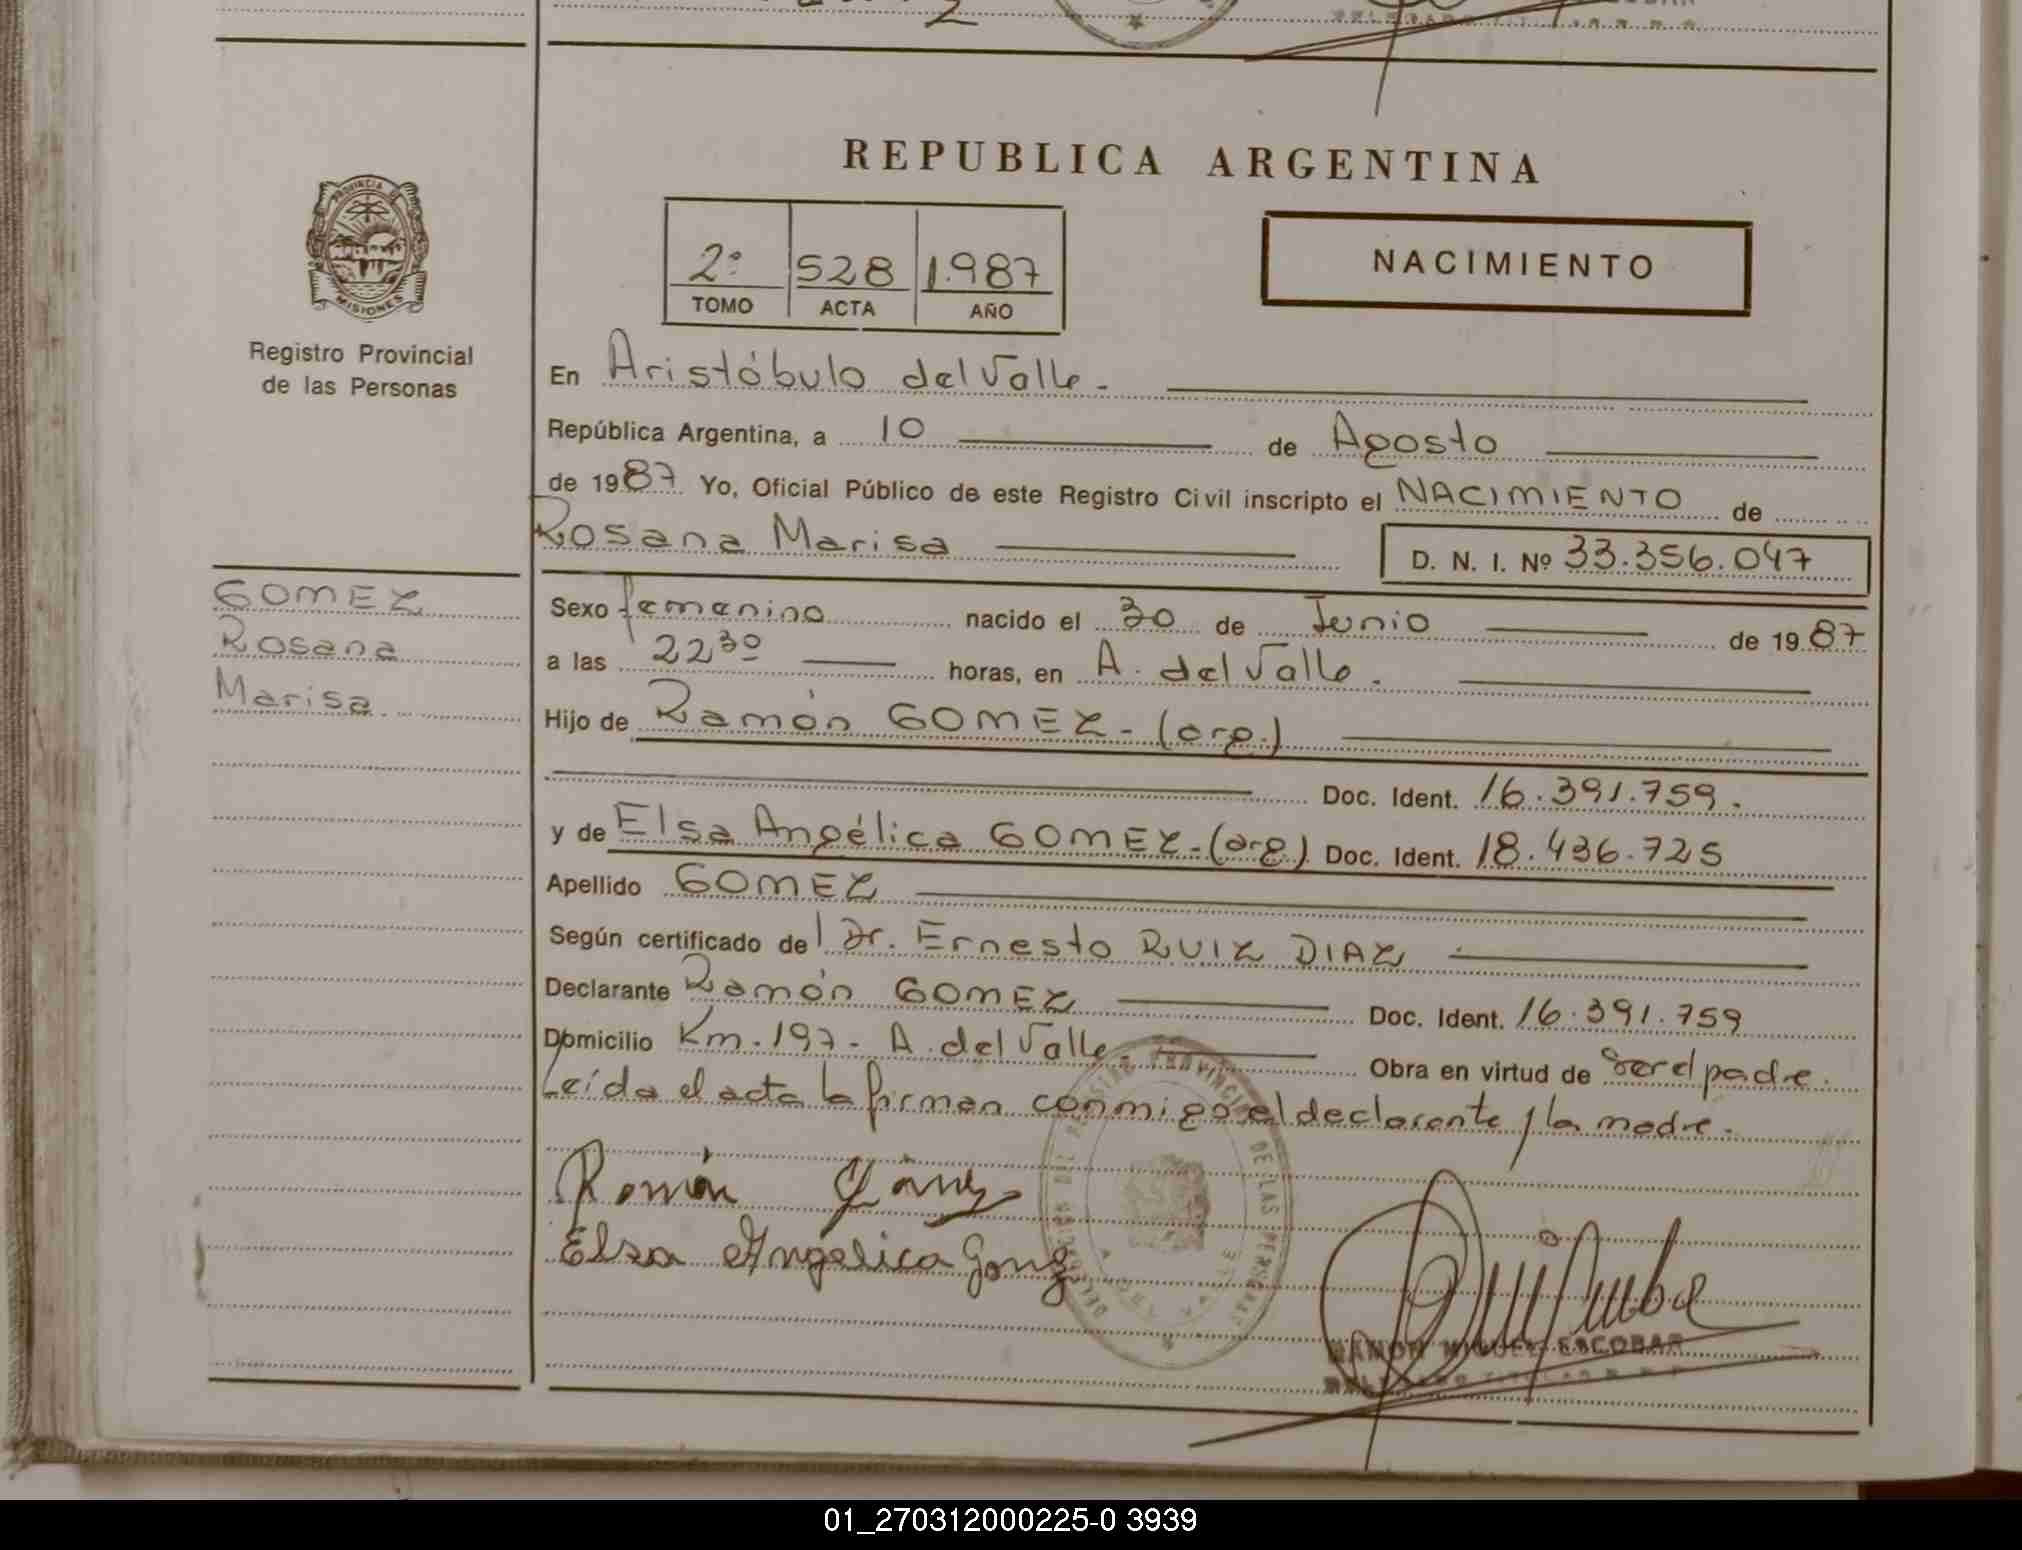 REPUBLICA ARGENTINA
PROVINCIA DE
MISIONES
Registro Provincial
de las Personas
2º 528 1.987
TOMO ACTA AÑO
NACIMIENTO
En Aristóbulo del Valle.
República Argentina, a 10 de Agosto
de 1987 Yo, Oficial Público de este Registro Civil inscripto el NACIMIENTO de
Rosana Marisa D. N. I. Nº 33.356.047
GOMEZ
Rosana
Marisa
Sexo femenino nacido el 30 de Junio de 1987
a las 22 30 horas, en A. del Valle.
Hijo de Ramón GOMEZ - (arg.)
Doc. Ident. 16.391.759.
y de Elsa Angélica GOMEZ - (arg) Doc. Ident. 18.436.725
Apellido GOMEZ
Según certificado del Dr. Ernesto RUIZ DIAZ
Declarante Ramón GOMEZ Doc. Ident. 16.391.759
Domicilio Km. 197 - A. del Valle. Obra en virtud de ser el padre.
Leída el acta la firman conmigo el declarante y la madre.
Ramón
Elsa Angelica
DE LAS PERSONAS
RAMON MIGUEL ESCOBAR
01_270312000225-0 3939